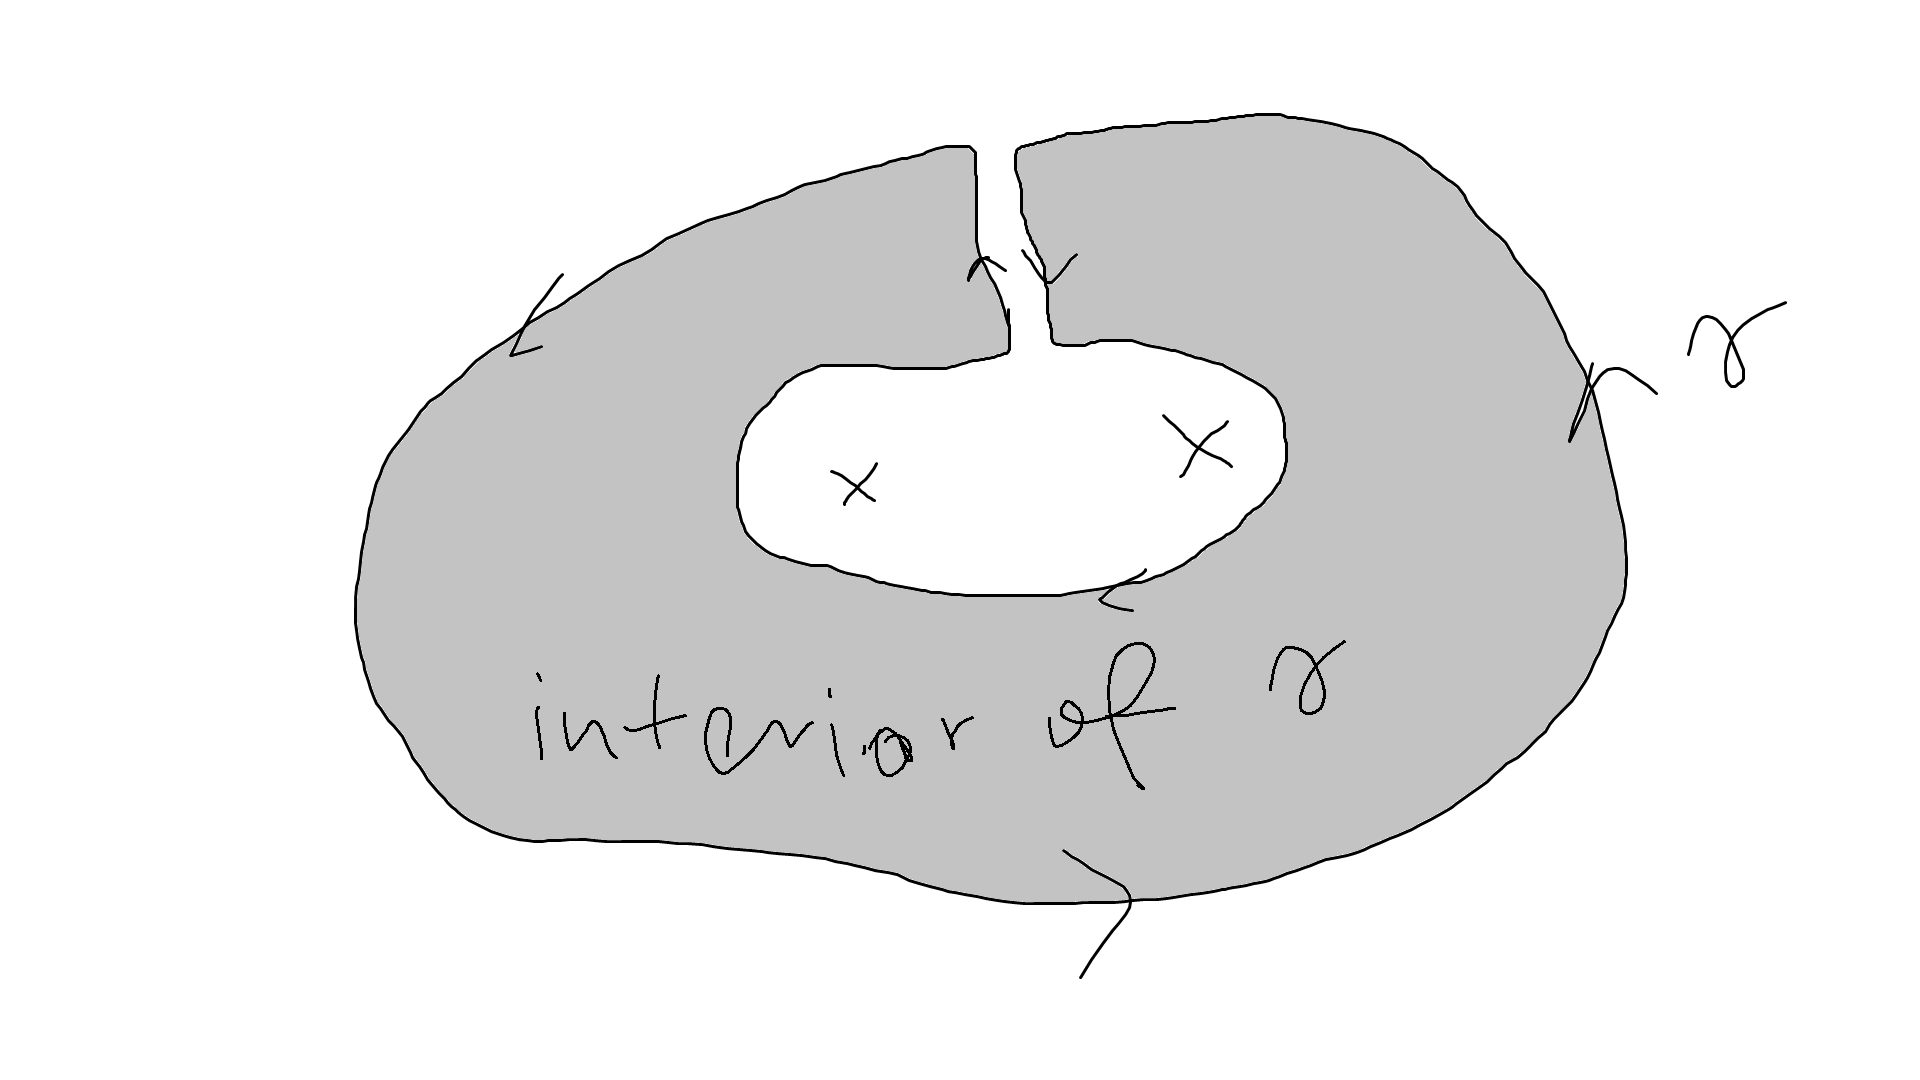 γ
x x
interior of γ